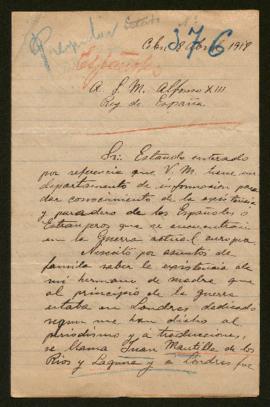 Estado
376
Españoles
1918
A. S. M. Alfonso XIII
Rey de España.
Sr: Estando enterado
por referencia que V. M. tiene un
departamento de informacion para
dar conocimiento de la existencia
y paradero de los Españoles o
Estranjeros que se encuentran
en la Guerra actual europea
Necesito por asuntos de
familia saber la existencia de
mi hermano de madre que
al principio de la Guerra
estaba en Londres dedicado
segun me han dicho al
periodismo y á traducciones,
se llama Juan Mantilla de los
Rios y Laguna y a Londres fue